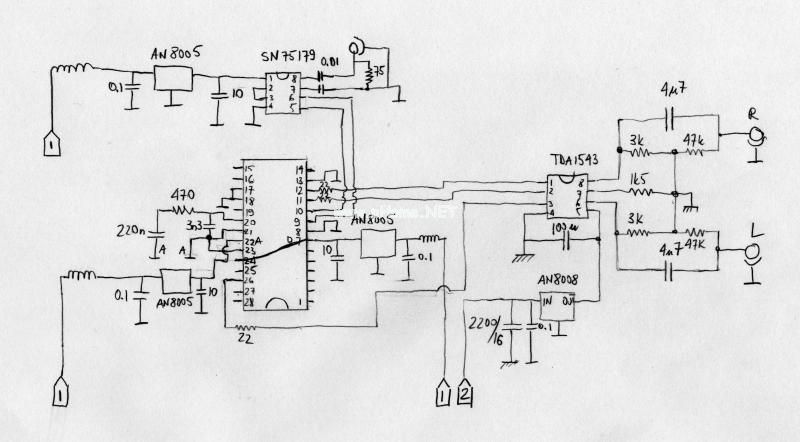 AN8005
SN75179
0.01
75
0.1
10
1 8
2 7
3 6
4 5
1
4µ7
R
3k
47k
TDA1543
1 8
2 7
3 6
4 5
1k5
3k
47k
L
4µ7
100u
15 14
16 13
17 12
18 11
19 10
20 9
21 8
22A
23
24
25
26
27
28 1
22
22
470
3n3
220n
A
A
AN8005
0.1
10
1
AN8005
10
0.1
22
1
2
AN8008
IN OU
2200/16
0.1